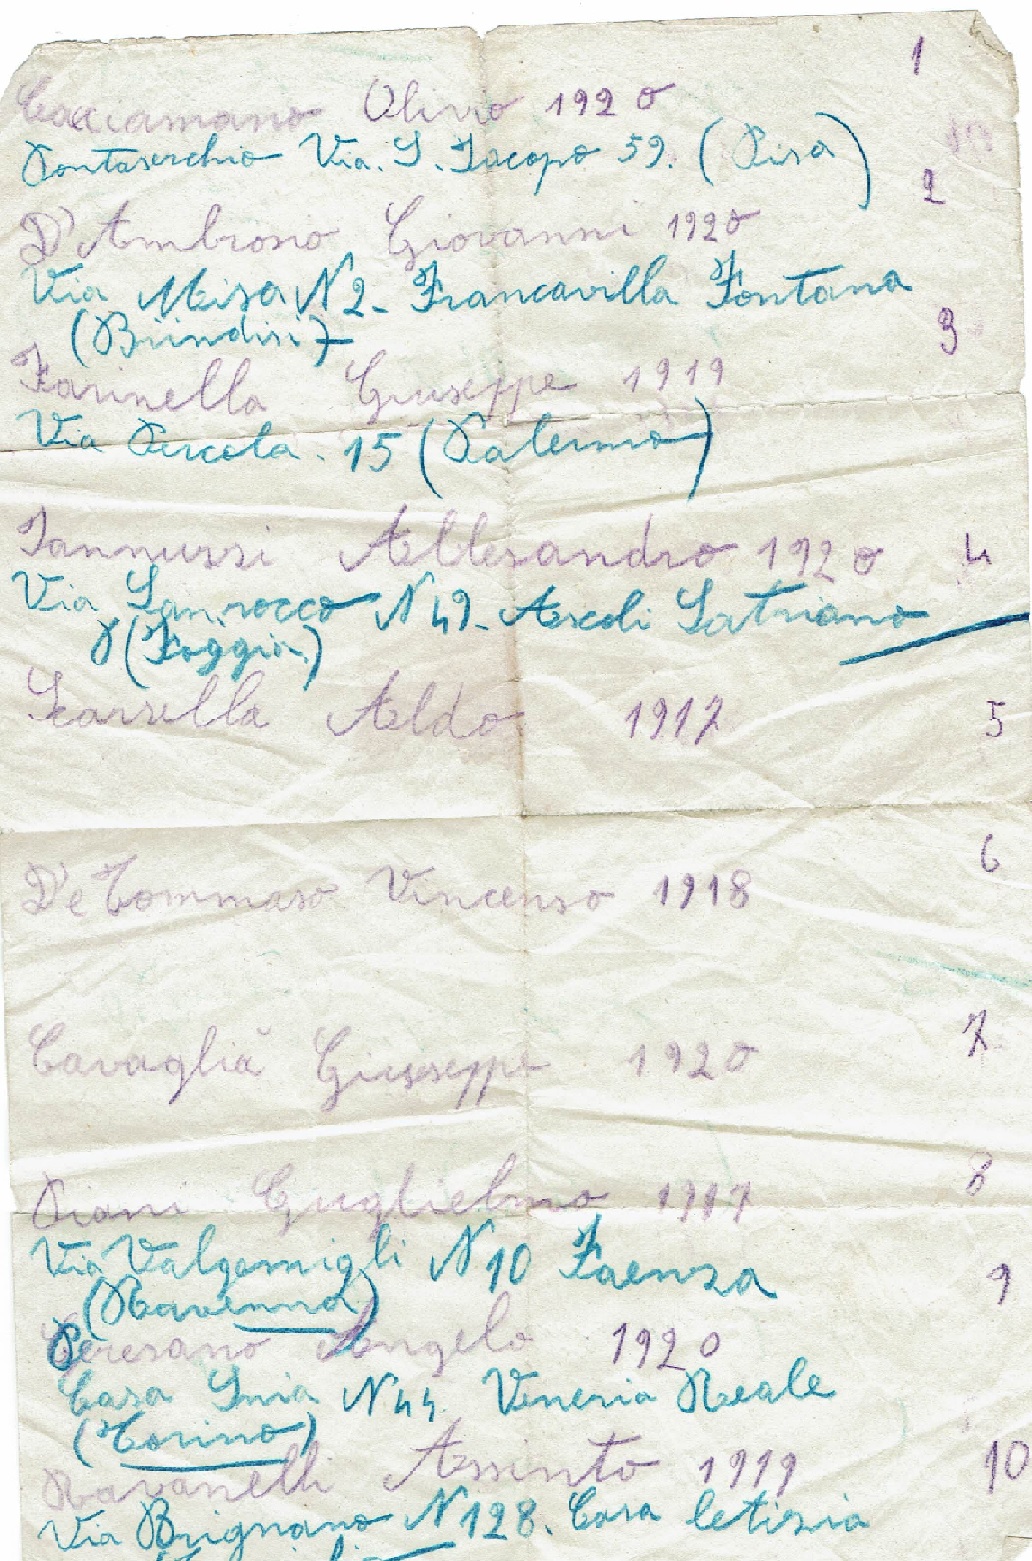 1
Cacciamano Olivo 1920
Pontaserchio Via. S. Iacopo 59. (Pisa)
2
D'Ambrosio Giovanni 1920
Via Misa N 2- Francavilla Fontana
(Brindisi)
3
Farinella Giuseppe 1919
Via Percola. 15 (Palermo)
Iannussi Allesandro 1920 4
Via San rocco N 49- Ascoli Satriano
(Foggia.)
Scarsella Aldo 1917 5
6
De Tommaso Vincenso 1918
7
Cavaglià Giuseppe 1920
8
Piani Guglielmo 1917
Via Valgemigli N 10 Faenza
(Ravenna) 9
Peresano Angelo 1920
Casa Snia N 44. Veneria Reale
(Torino)
Ravanelli Assinto 1919 10
Via Brignano N 128. Casa letisia